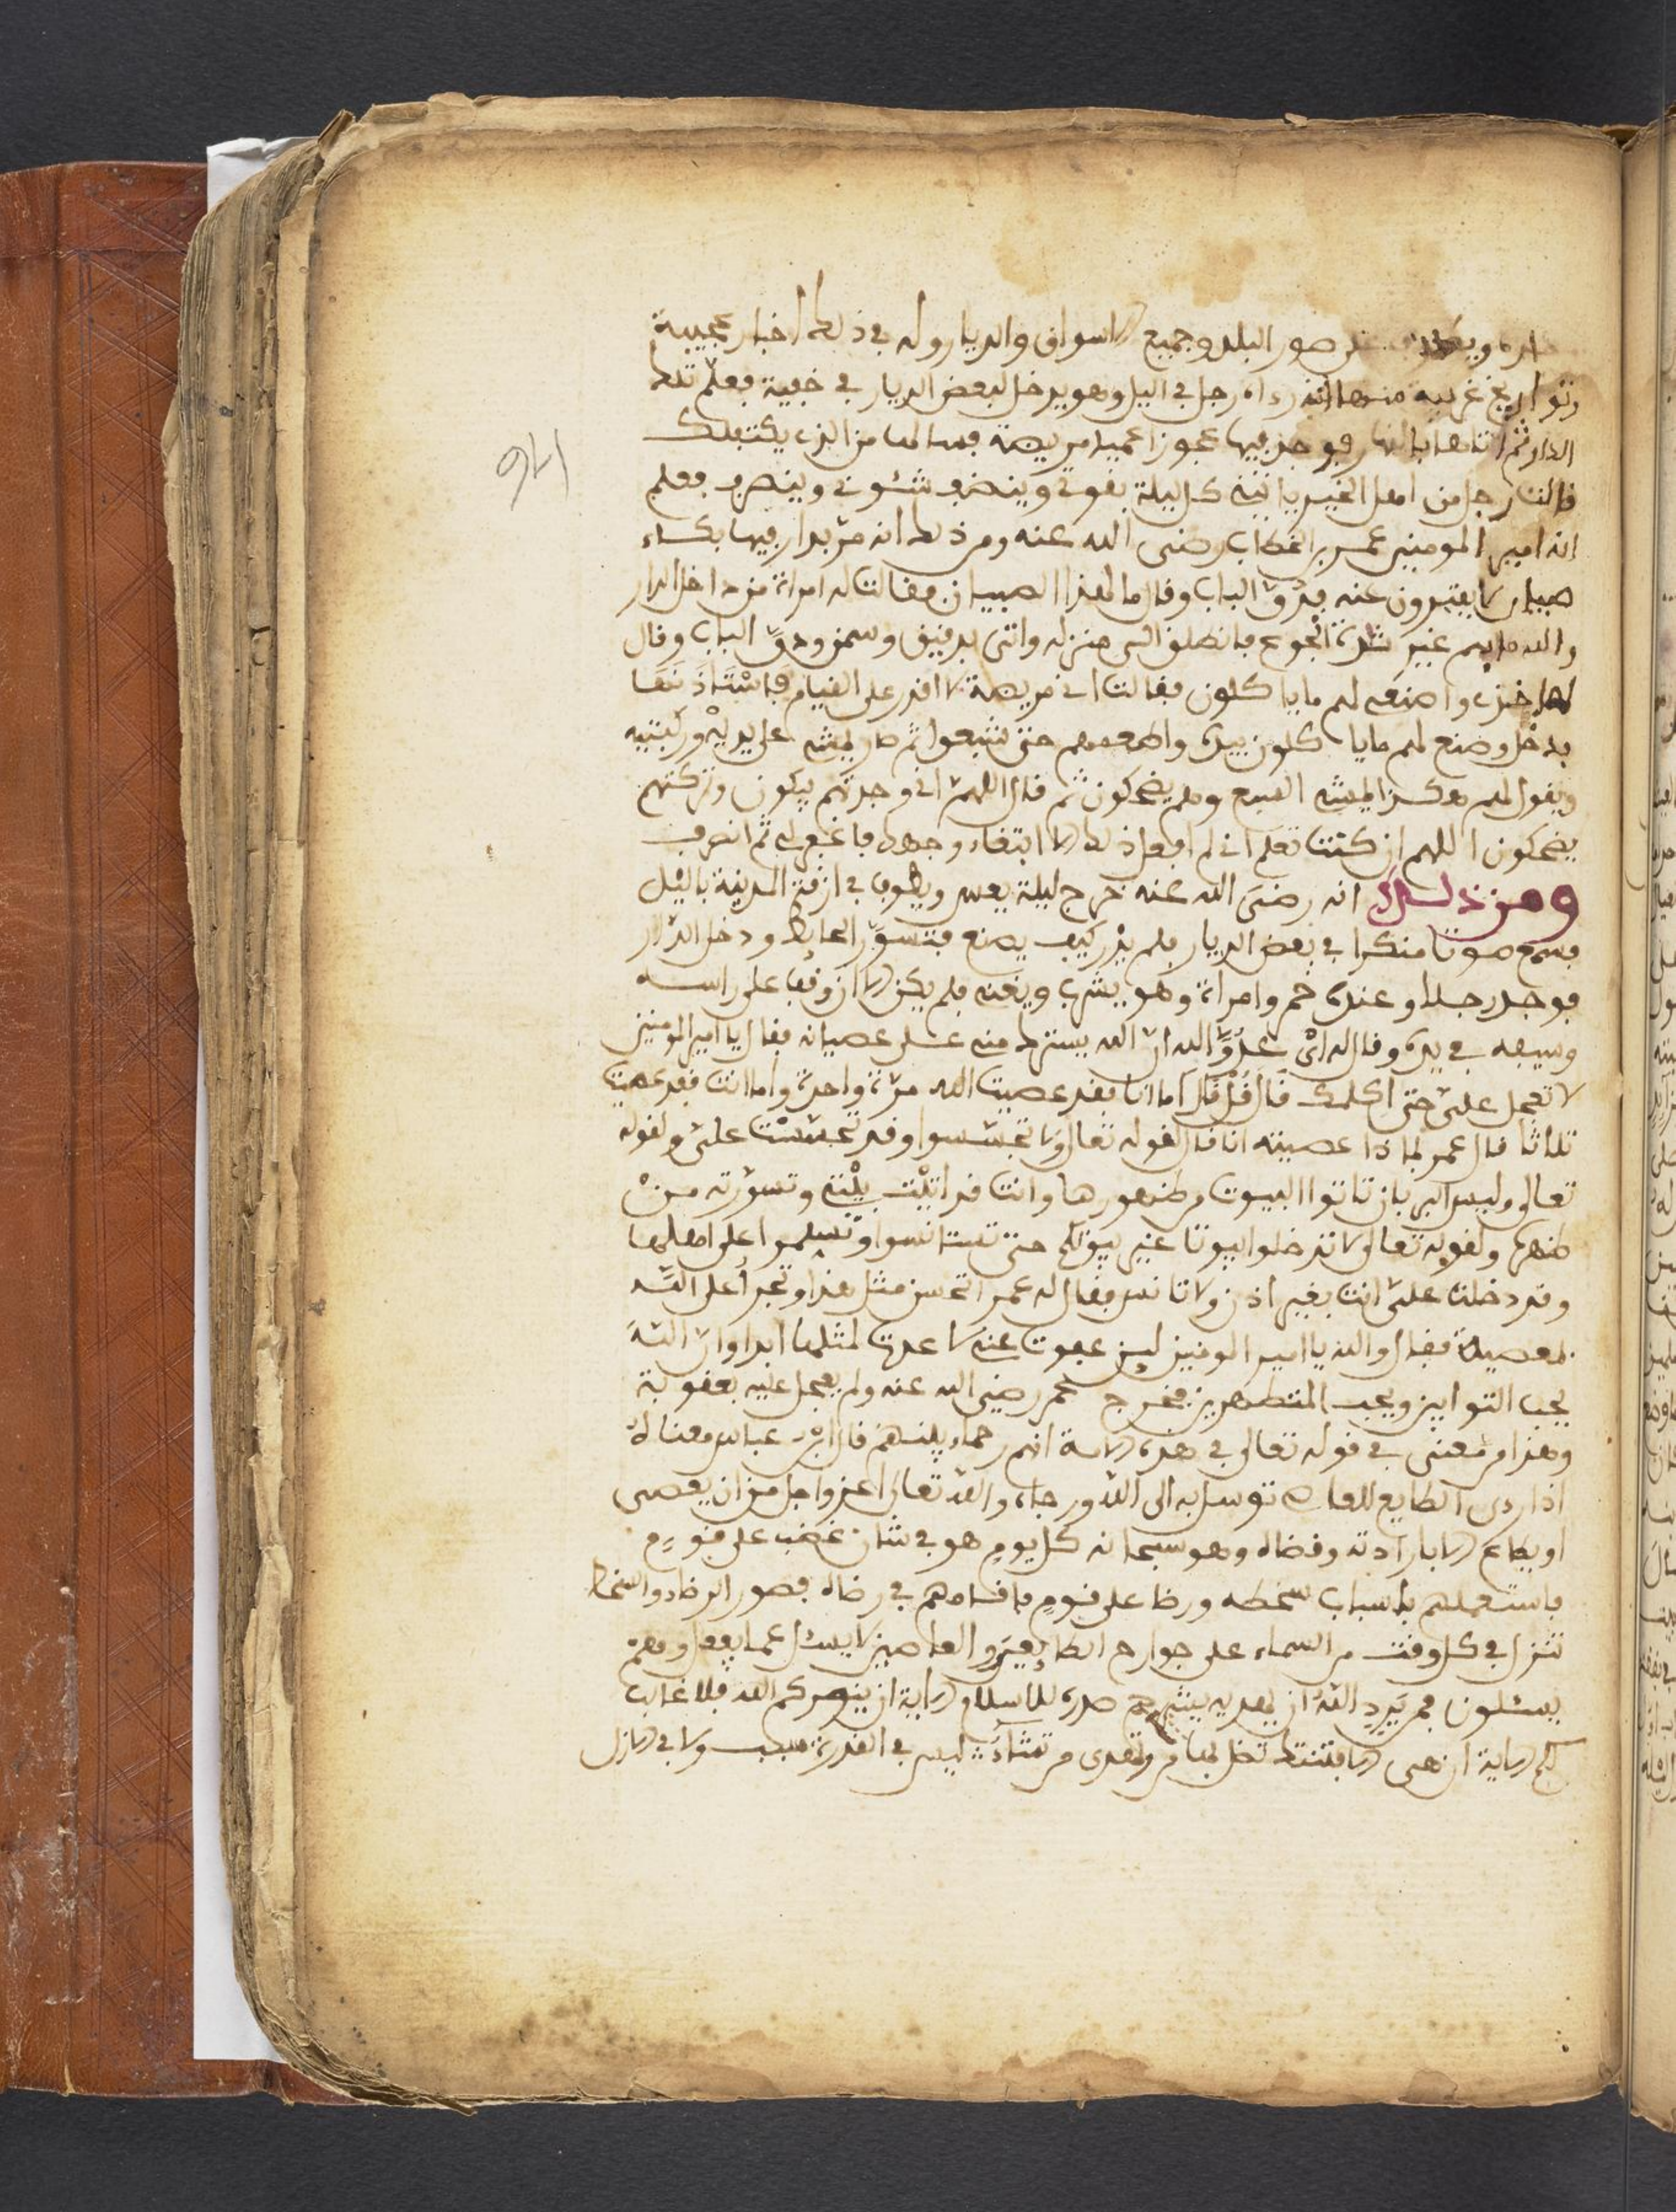 داره ويطوف على صور البلد وجميع الاسواق والديار وله في ذلك اخبار عجيبة
وتواريخ غريبة منها انه رءاه رجل في اليل وهو يدخل لبعض الديار في خفية فعلم تلك
الدار ثم اتاها بالنهار فوجد فيها عجوزا عمياء مريضة فسالها من الذي يكتفلك
قالت رجل من اهل الخير ياتيني كل ليلة بقوتي وينضر شئوني وينصرف فعلم
انه امير المومنين عمر بن الخطاب رضي الله عنه ومن ذلك انه مر بدار فيها بكاء
صبيان لا يفترون عنه فدق الباب وقال ما لهذا الصبيان فقالت له امراة من داخل الدار
والله ما بهم غير شدة الجوع فانطلق الى منزله واتى بدقيق وسمن ودق الباب وقال
لها خذي واصنعي لهم ما ياكلون فقالت اني مريضة لا اقدر على القيام فاستاذنها
فدخل وصنع لهم ما ياكلون بيده واطعمهم حتى شبعوا ثم صار يمشي على يديه وركبتيه
ويقول لهم هكذا يمشي السبع وهم يضحكون ثم قال اللهم اني وجدتهم يبكون وتركتهم
يضحكون اللهم ان كنت تعلم اني لم افعل ذلك الا ابتغاء وجهك فاغفر لي ثم انصرف
ومن ذلك انه رضي الله عنه خرج ليلة يعس ويطوف في ازقة المدينة باليل
فسمع صوتا منكرا في بعض الديار فلم يدر كيف يصنع فتسور الحايط ودخل الدار
فوجد رجلا وعنده خمر وامراة وهو يشرب ويغني فلم يكن الا ان وقف على راسه
وسيفه في يده وقال له اي عدو الله ان الله يسترك منه على عصيانه فقال يا امير المومنين
لا تعجل علي حتى اكلمك قال قل قال اما انا فقد عصيت الله مرة واحدة واما انت فقد عصيت
ثلاثا قال عمر لماذا عصيته انا قال لقوله تعالى ولا تجسسوا وقد تجسست علي ولقوله
تعالى وليس البر بان تاتوا البيوت من ظهورها وانت قد اتيت بيتي وتسورته من
ظهره ولقوله تعالى لا تدخلوا بيوتا غير بيوتكم حتى تستانسوا وتسلموا على اهلها
وقد دخلت علي انت بغير اذن ولا تانس فقال له عمر اتحسن مثل هذا وتجرا على الله
بمعصية فقال والله يا امير المومنين لين عفوت عني لا عدت لمثلها ابدا وان الله
يحب التوابين ويحب المتطهرين فخرج عمر رضي الله عنه ولم يعجل عليه بعقوبة
وهذا من معنى في قوله تعالى في هذه الامة انهم رحماء بينهم قال ابن عباس معناه
اذا ردى الطايع للعاصي توسل به الى الله ورجاه والله تعالى اعز واجل من ان يعصى
او يطاع الا بارادته وقضاه وهو سبحانه كل يوم هو في شان غضب على قوم
فاستعملهم باسباب سخطه ورضا على قوم فاقامهم في رضاه فصور الرضاء والسخط
تنزل في كل وقت من السماء على جوارح الطايعين والعاصين لا يسئل عما يفعل وهم
يسئلون فمن يرد الله ان يهديه يشرح صدره للاسلام الاية ان ينصركم الله فلا غالب
لكم الاية ان هي الا فتنتك تضل بها من وتهدي من تشاء ليس في القدرة سبب ولا في الازل